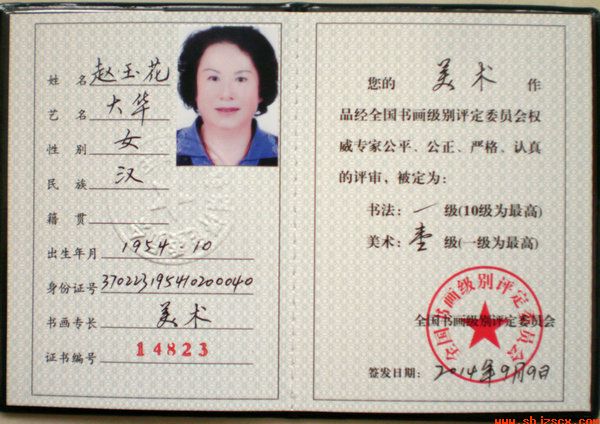 姓 名 赵玉花
艺 名 大华
性 别 女
民 族 汉
籍 贯
出生年月 1954.10
身份证号 370223195410200040
书画专长 美术
证书编号 14823
您的 美术 作
品经全国书画级别评定委员会权
威专家公平、公正、严格、认真
的评审，被定为：
书法：一 级(10级为最高)
美术：壹 级(一级为最高)
全国书画级别评定委员会
全国书画级别评定委员会
签发日期：2014年9月9日
www.shjzscx.com